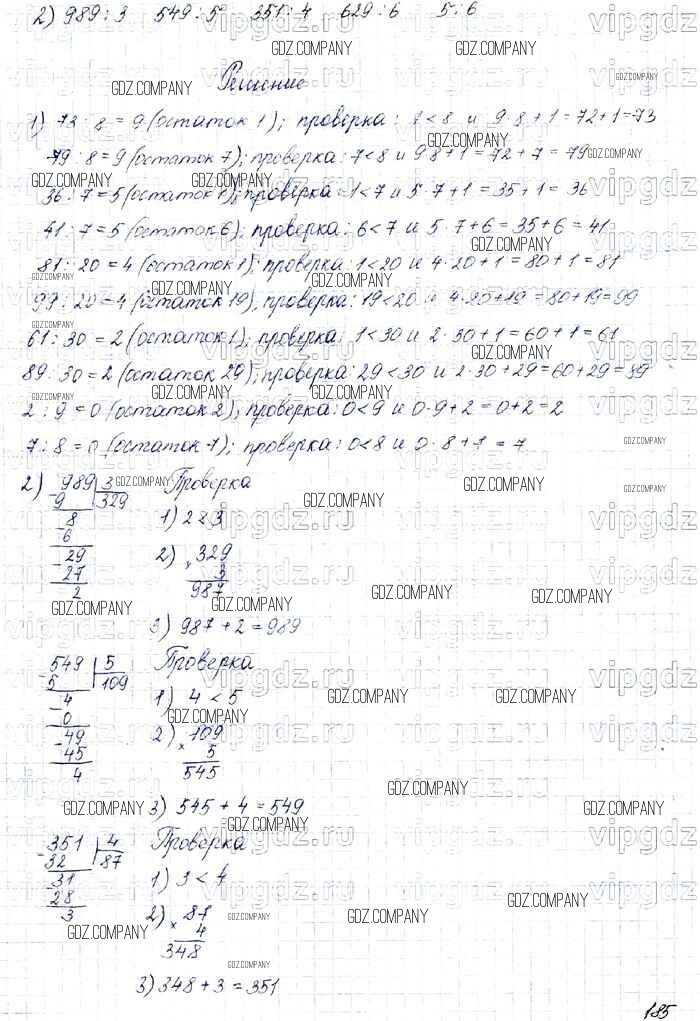 2) 989 : 3   549 : 5   351 : 4   629 : 6   5 : 6
Решение
1) 73 : 8 = 9 (остаток 1); проверка: 1 < 8 и 9·8 + 1 = 72 + 1 = 73
79 : 8 = 9 (остаток 7); проверка: 7 < 8 и 9·8 + 1 = 72 + 7 = 79
36 : 7 = 5 (остаток 1); проверка: 1 < 7 и 5·7 + 1 = 35 + 1 = 36
41 : 7 = 5 (остаток 6); проверка: 6 < 7 и 5·7 + 6 = 35 + 6 = 41
81 : 20 = 4 (остаток 1); проверка: 1 < 20 и 4·20 + 1 = 80 + 1 = 81
99 : 20 = 4 (остаток 19); проверка: 19 < 20 и 4·20 + 19 = 80 + 19 = 99
61 : 30 = 2 (остаток 1); проверка: 1 < 30 и 2·30 + 1 = 60 + 1 = 61
89 : 30 = 2 (остаток 29); проверка: 29 < 30 и 2·30 + 29 = 60 + 29 = 89
2 : 9 = 0 (остаток 2); проверка: 0 < 9 и 0·9 + 2 = 0 + 2 = 2
7 : 8 = 0 (остаток 7); проверка: 0 < 8 и 0·8 + 7 = 7
2) 989 | 3   Проверка
9   329
8   1) 2 < 3
6
29   2) 329
27   × 3
2   987
3) 987 + 2 = 989
549 | 5   Проверка
5   109
4   1) 4 < 5
0
49   2) 109
45   × 5
4   545
3) 545 + 4 = 549
351 | 4   Проверка
32   87
31   1) 3 < 4
28
3   2) 87
× 4
348
3) 348 + 3 = 351
185
GDZ.COMPANY
vipgdz.ru